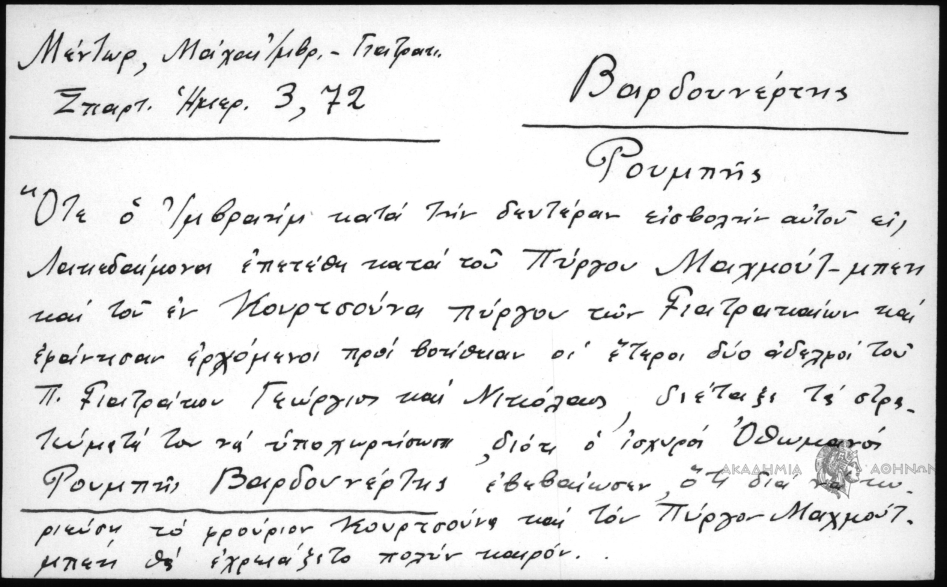 Μέντωρ, Μαχαιτ/μβρ. - Γιατρακ.
Σπαρτ. Ἡμερ. 3, 72
Βαρδουνέρτης
Ρουμπῆς
"Ὅτε ὁ Ἰμβραήμ κατά τήν δευτέραν εἰσβολήν αὐτοῦ εἰς
Λακεδαίμονα ἐπετέθη κατά τοῦ Πύργου Μαχμούτ-μπεη
καί τοῦ ἐν Κουρτσούνα πύργου τῶν Γιατρακαίων καί
ἐφάνησαν ἐρχόμενοι πρός βοήθειαν οἱ ἕτεροι δύο ἀδελφοί τοῦ
Π. Γιατράκου Γεώργιος καί Νικόλαος, διέταξε τά στρα-
τεύματά του νά ὑποχωρήσωσι, διότι ὁ ἰσχυρός Ὀθωμανός
Ρουμπῆς Βαρδουνέρτης ἐβεβαίωσεν, ὅτι διά νά κυ-
ριεύσῃ τό φρούριον Κουρτσούνα καί τόν Πύργον Μαχμούτ-
μπεη θά ἐχρειάζετο πολύν καιρόν.
ΑΚΑΔΗΜΙΑ ΑΘΗΝΩΝ